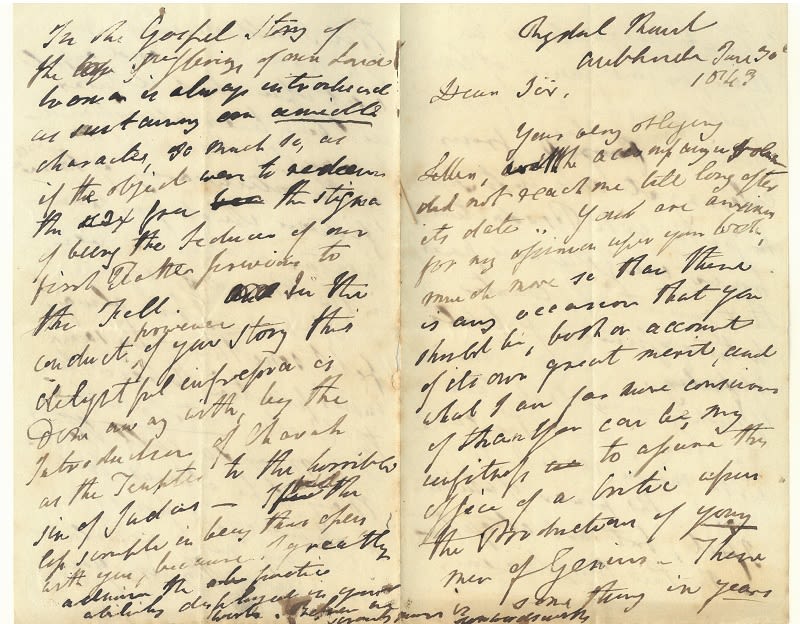 Rydal Mount
Ambleside June 30th
1843
Dear Sir,
Your very obliging
Letter, and the accompanying Volume
did not reach me till long after
its date. You are anxious
for my opinion upon your work,
much more so than there
is any occasion that you
should be, both on account
of its own great merit, and
what I am far more conscious
of than you can be, my
unfitness to assume the
office of a Critic upon
the Productions of young
men of Genius - There
is something in years
In the Gospel Story of
the sufferings of our Lord
Woman is always introduced
as sustaining an amiable
character, so much so, as
if the object were to redeem
the sex from the stigma
of being the Seducer of our
first Father previous to
the Fall. In the
conduct however of your Story this
delightful impression is
Done away with, by the
Introduction of
as the Tempter to the horrible
sin of Judas - I the
less scruple in being thus open
with you, because I greatly
admire the poetic
abilities displayed in your
work. Believe me
sincerely yours
Wm Wordsworth